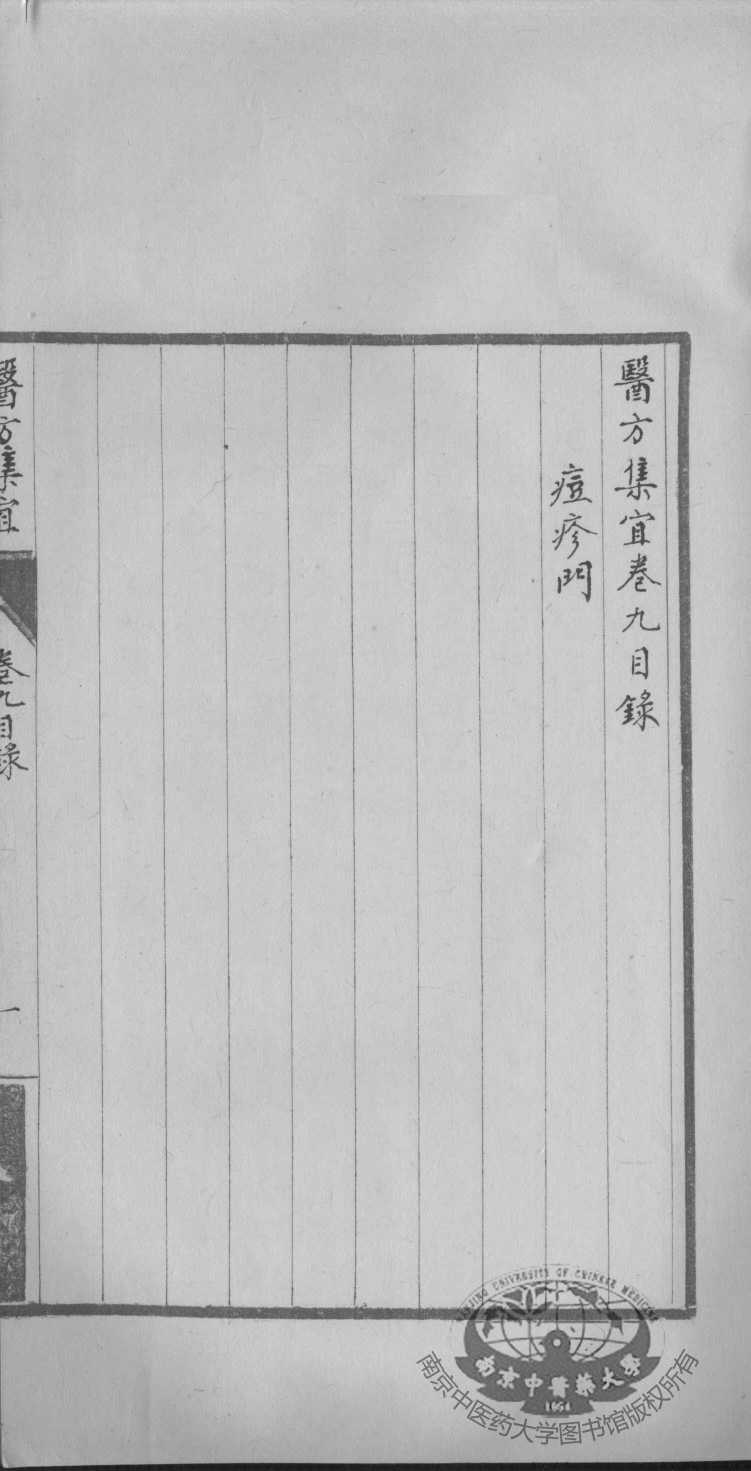 醫方集宜卷九目錄
痘疹門
醫方集宜
卷九目錄
一
NANJING UNIVERSITY OF CHINESE MEDICINE
南京中醫藥大學
1954
南京中医药大学图书馆版权所有